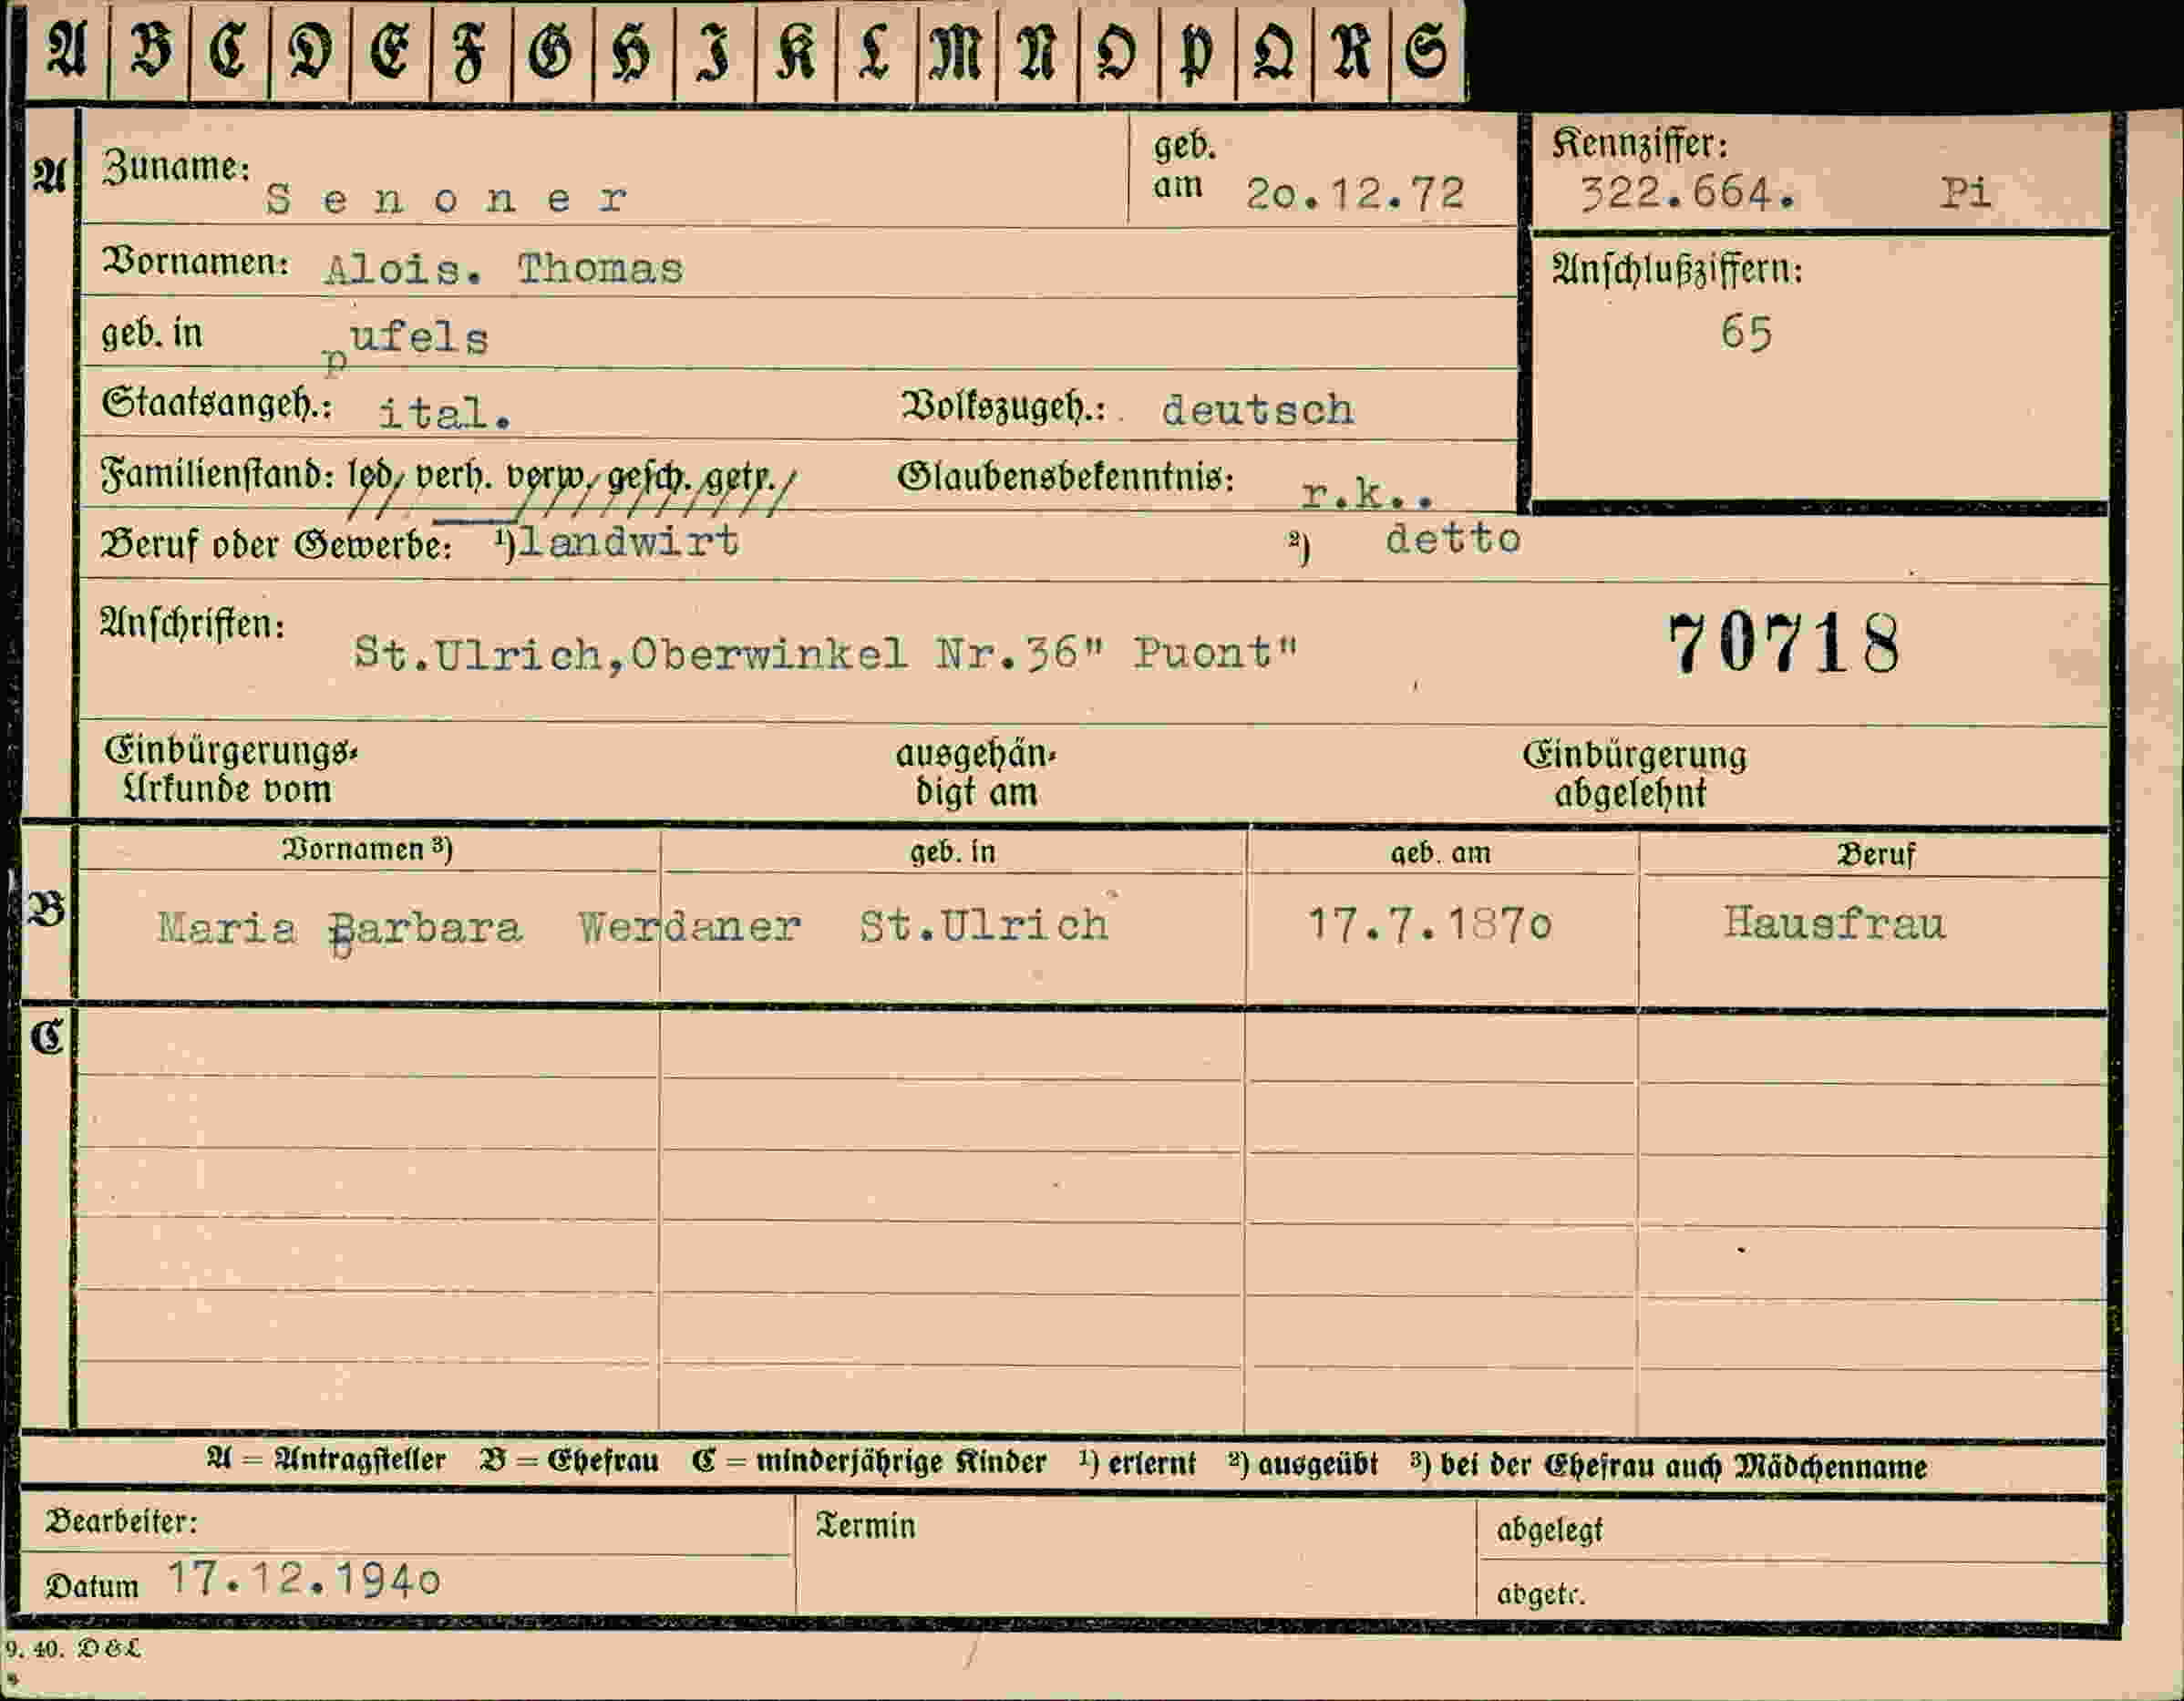 A B C D E F G H I K L M N O P Q R S
A Zuname: Senoner geb. am 20.12.72 Kennziffer: 322.664. Pi
Vornamen: Alois. Thomas Anschlußziffern:
geb. in pufels 65
Staatsangeh.: ital. Volkszugeh.: deutsch
Familienstand: led, verh. verw, gesch. getr. Glaubensbekenntnis: r.k..
Beruf oder Gewerbe: 1)landwirt 2) detto
Anschriften: St.Ulrich,Oberwinkel Nr.36" Puont" 70718
Einbürgerungs- ausgehän- Einbürgerung
Urkunde vom digt am abgelehnt
Vornamen 3) geb. in geb. am Beruf
B Maria Barbara Werdaner St.Ulrich 17.7.1870 Hausfrau
C
A = Antragsteller B = Ehefrau C = minderjährige Kinder 1) erlernt 2) ausgeübt 3) bei der Ehefrau auch Mädchenname
Bearbeiter: Termin abgelegt
Datum 17.12.1940 abgetr.
9. 40. D&L